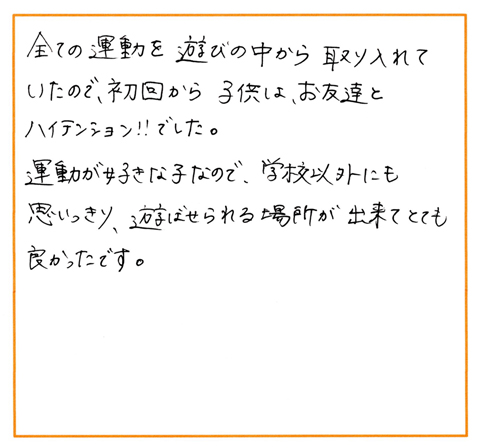 全ての運動を遊びの中から取り入れて
いたので、初回から子供は、お友達と
ハイテンション!!でした。
運動が好きな子なので、学校以外にも
思いっきり、遊ばせられる場所が出来てとても
良かったです。